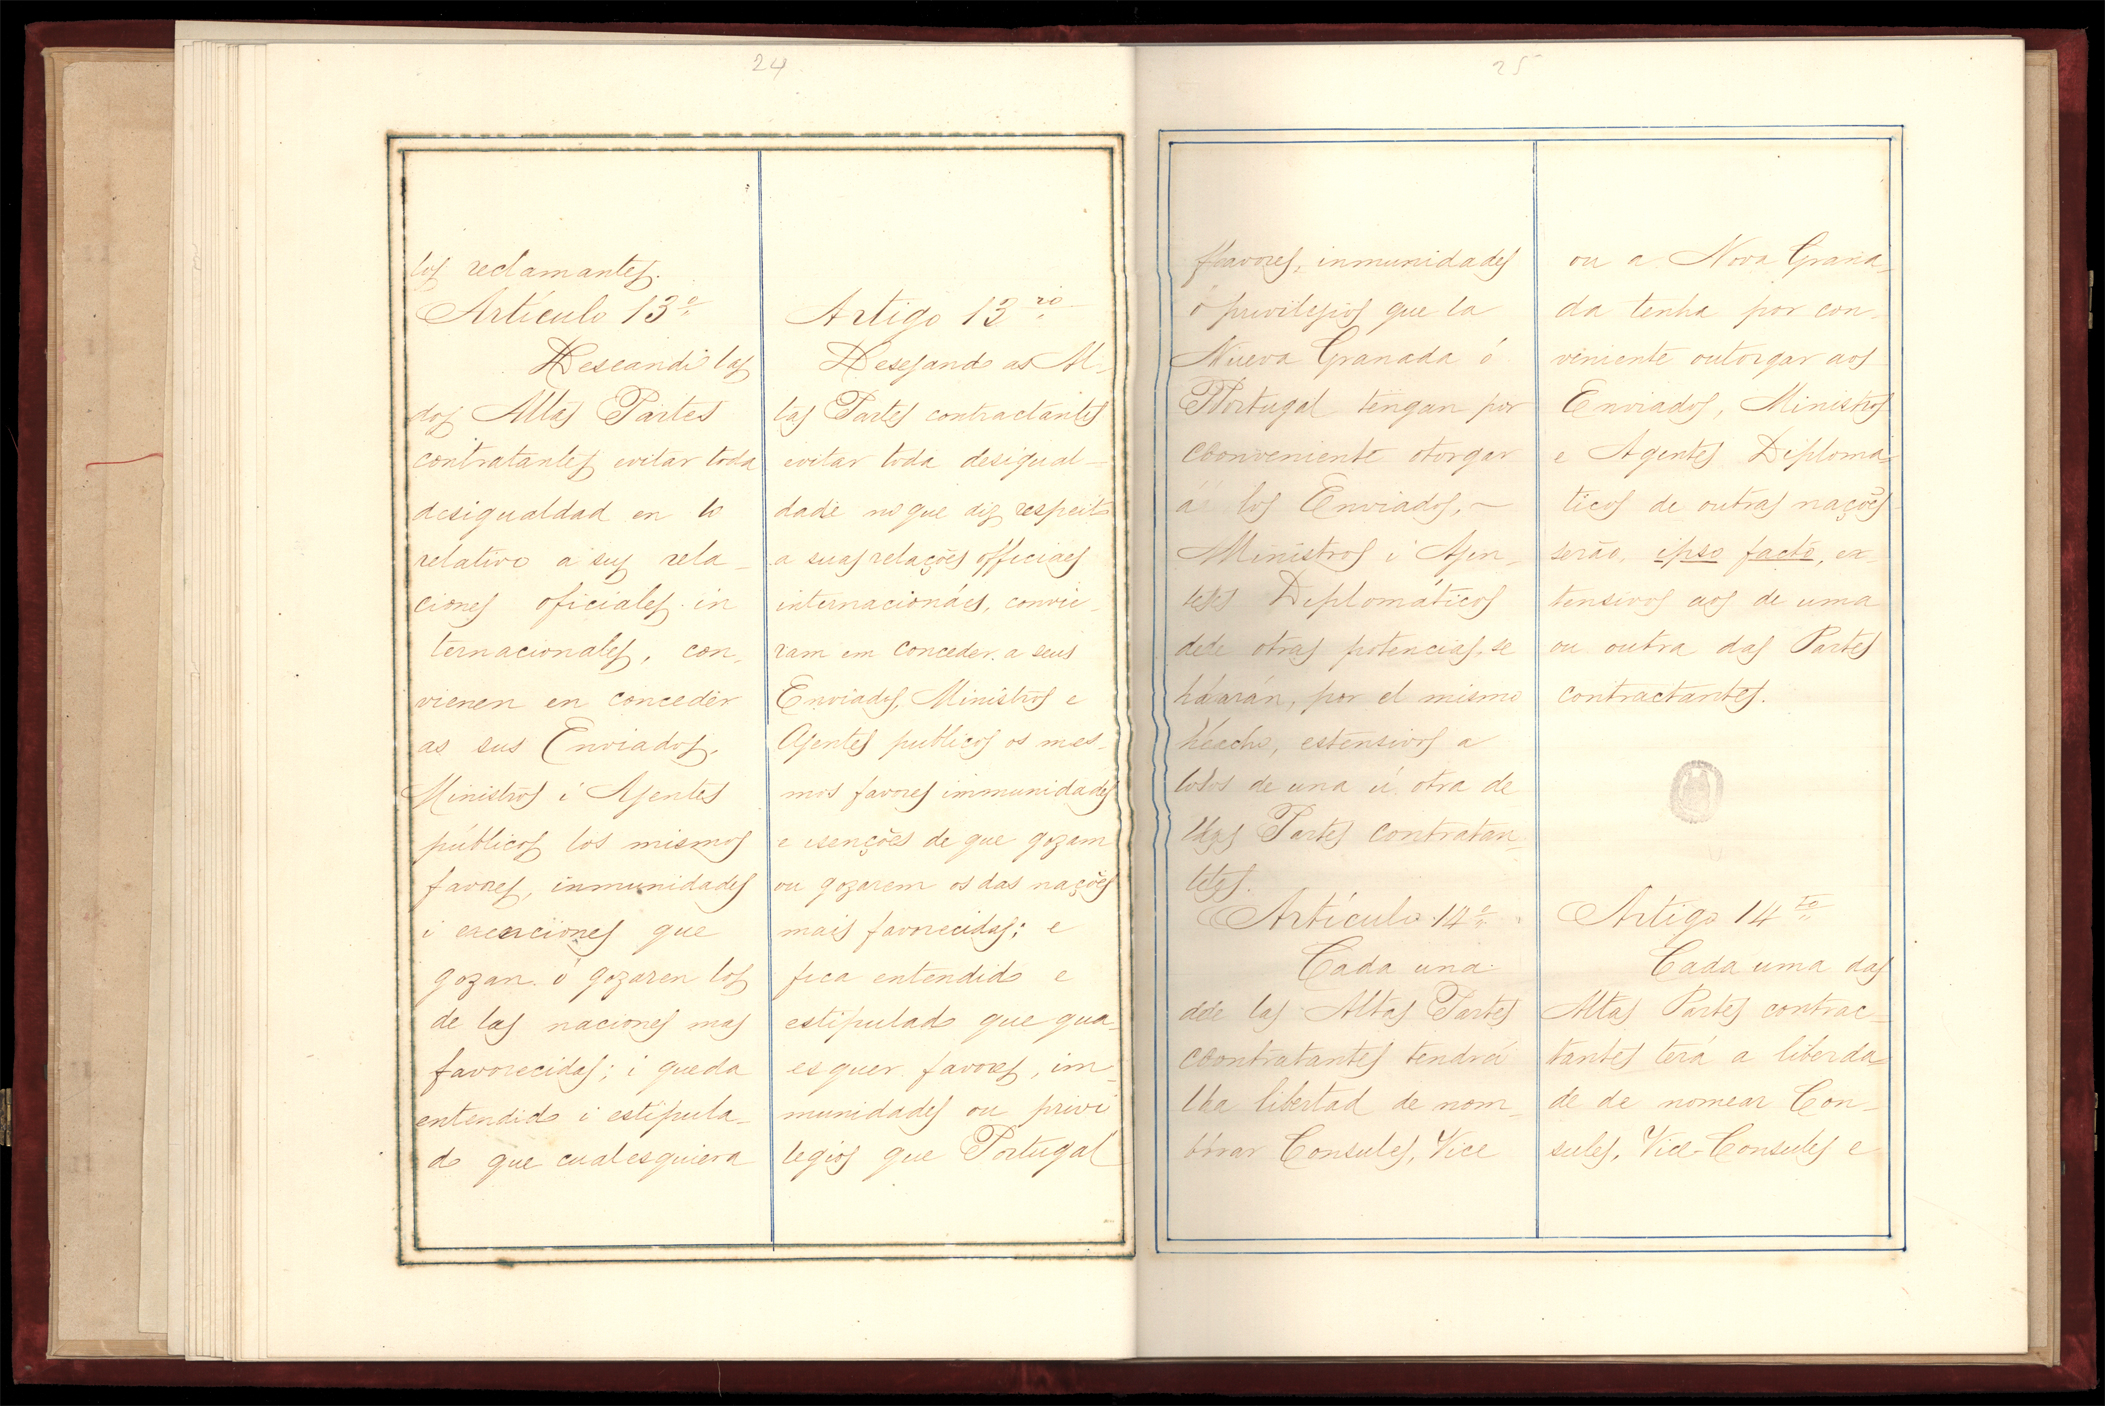 24
los reclamantes.
Artículo 13º
Deseando las
dos Altas Partes
contratantes evitar toda
desigualdad en lo
relativo a sus rela-
ciones oficiales in
ternacionales, con-
vienen en conceder
as sus Enviados,
Ministros i Ajentes
públicos los mismos
favores, inmunidades
i que
gozan ó gozaren los
de las naciones mas
favorecidas; i queda
entendido i estipula-
do que cualesquiera
Artigo 13ro
Desejando as Al-
tas Partes contractantes
evitar toda desigual-
dade no que diz respeito
a suas relações officiaes
internacionáes, convie-
ram em conceder a seus
Enviados, Ministros e
Agentes publicos os mes-
mos favores immunidades
e isenções de que gozam
ou gozarem os das nações
mais favorecidas; e
fica entendido e
estipulado que qua-
esquer favores, im-
munidades ou privi
legios que Portugal
25
favores, inmunidades
ó privilejios que la
Nueva Granada ó
Portugal tengan por
conveniente otorgar
á los Enviados, ~
Ministros i Ajen-
tes Diplomáticos
de otras potencias, se
harán, por el mismo
hecho, estensivos a
los de una ú otra de
las Partes contratan-
tes.
Artículo 14º
Cada una
de las Altas Partes
contratantes tendrá
la libertad de nom-
brar Consules, Vice
ou a Nova Grana-
da tenha por con-
veniente outorgar aos
Enviados, Ministros
e Agentes Diploma-
ticos de outras nações
serão, ipso facto, ex-
tensivos aos de uma
ou outra das Partes
contractantes.
Artigo 14to
Cada uma das
Altas Partes contrac-
tantes terá a liberda
de de nomear Con-
sules, Vice-Consules e